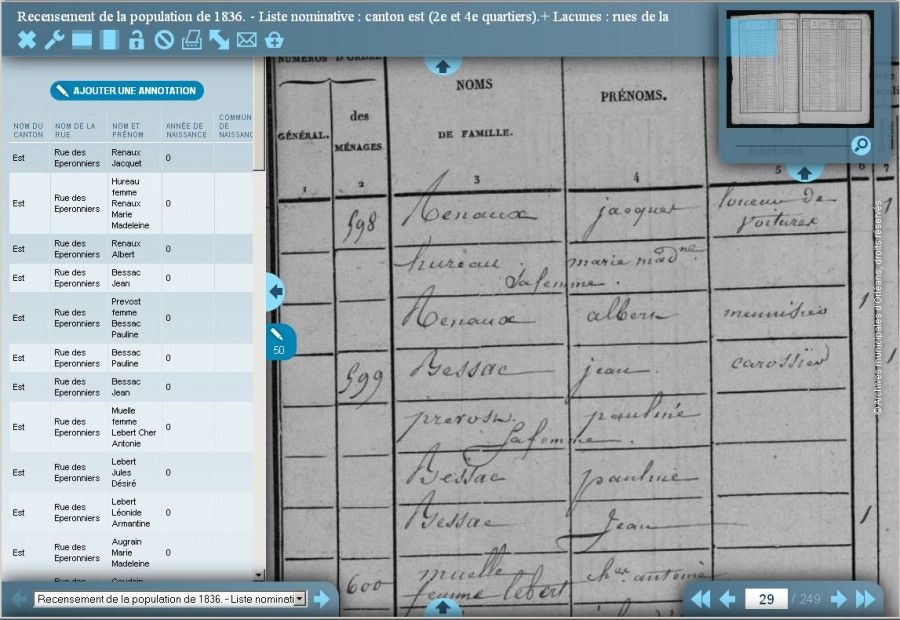 Recensement de la population de 1836. - Liste nominative : canton est (2e et 4e quartiers).+ Lacunes : rues de la
AJOUTER UNE ANNOTATION
NOM DU CANTON NOM DE LA RUE NOM ET PRÉNOM ANNÉE DE NAISSANCE COMMUN DE NAISSANC
Est Rue des Eperonniers Renaux Jacquet 0
Est Rue des Eperonniers Hureau femme Renaux Marie Madeleine 0
Est Rue des Eperonniers Renaux Albert 0
Est Rue des Eperonniers Bessac Jean 0
Est Rue des Eperonniers Prevost femme Bessac Pauline 0
Est Rue des Eperonniers Bessac Pauline 0
Est Rue des Eperonniers Bessac Jean 0
Est Rue des Eperonniers Muelle femme Lebert Cher Antonie 0
Est Rue des Eperonniers Lebert Jules Désiré 0
Est Rue des Eperonniers Lebert Léonide Armantine 0
Est Rue des Eperonniers Augrain Marie Madeleine 0
50
NUMÉROS D'ORDRE
GÉNÉRAL.
des MÉNAGES
NOMS
DE FAMILLE.
PRÉNOMS.
1 2 3 4 5 6 7
598 Renaux jacques loueur de voitures 1
hureau marie madne
Sa femme.
Renaux albert meunisier 1
599 Bessac jean. carossier 1
prevost. pauline
Sa femme.
Bessac pauline
Bessac Jean 1
600 muelle cher antonie
femme lebert
© Archives municipales d'Orléans, droits réservés.
Recensement de la population de 1836. - Liste nominati
29 / 249